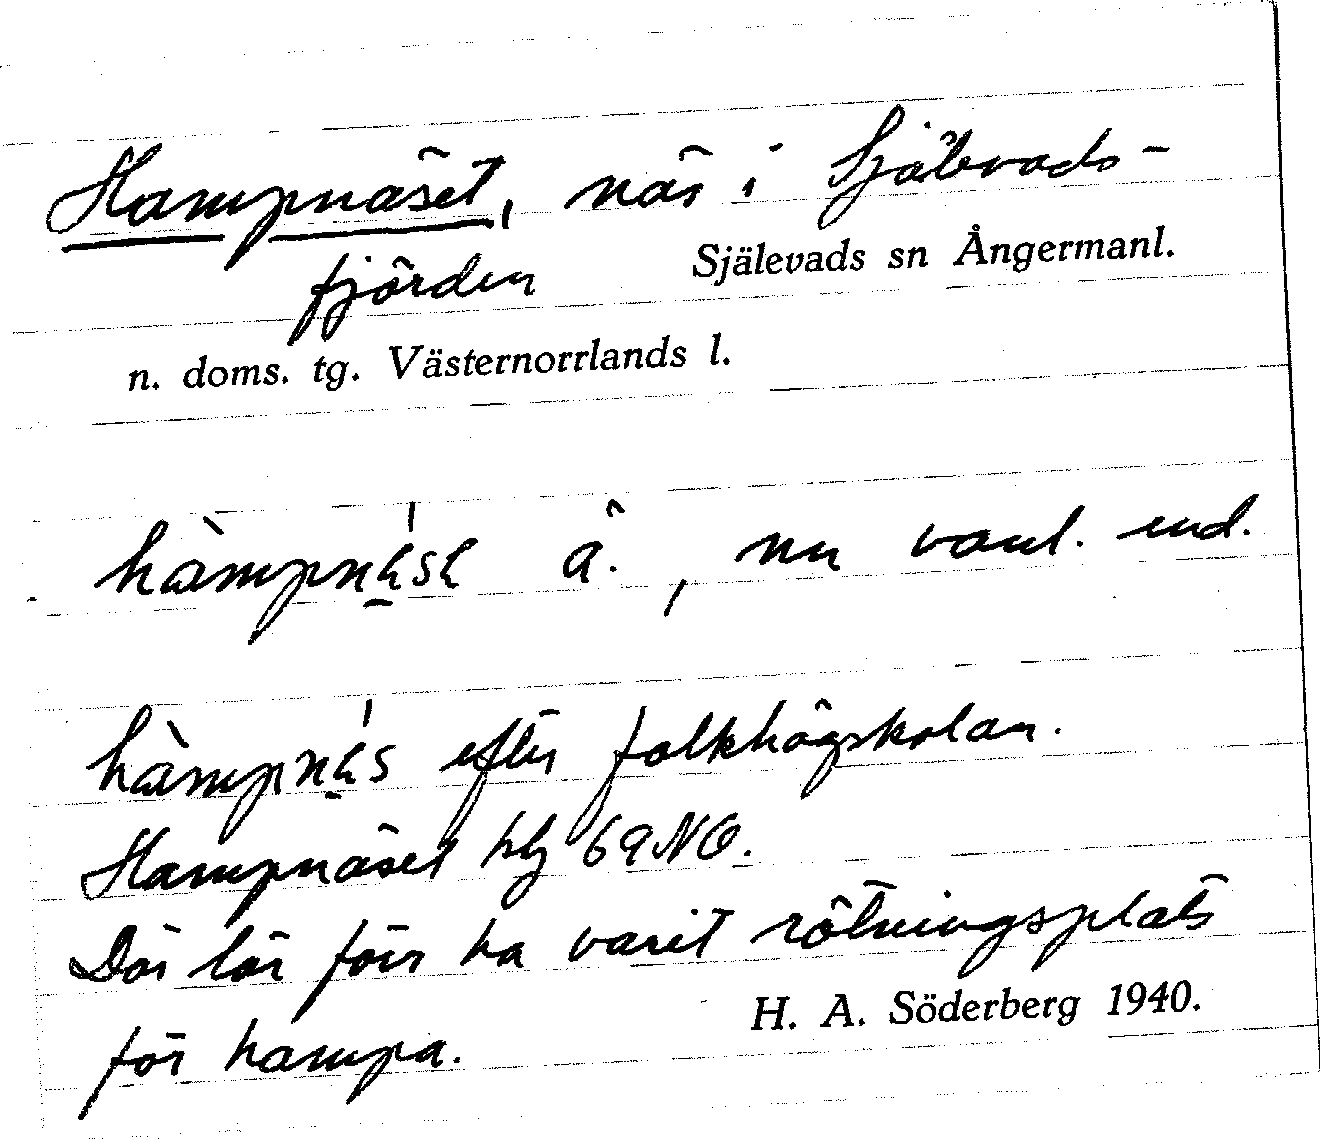 Hampnäset, näs i Själevads-
fjärden Själevads sn Ångermanl.
n. doms. tg. Västernorrlands l.
hàmpnɛ̀sɛ â. , nu vanl. end.
hàmpnɛ̀s efter folkhögskolan.
Hampnäset hlj 69NO.
Där lär förr ha varit rötningsplats
för hampa. H. A. Söderberg 1940.